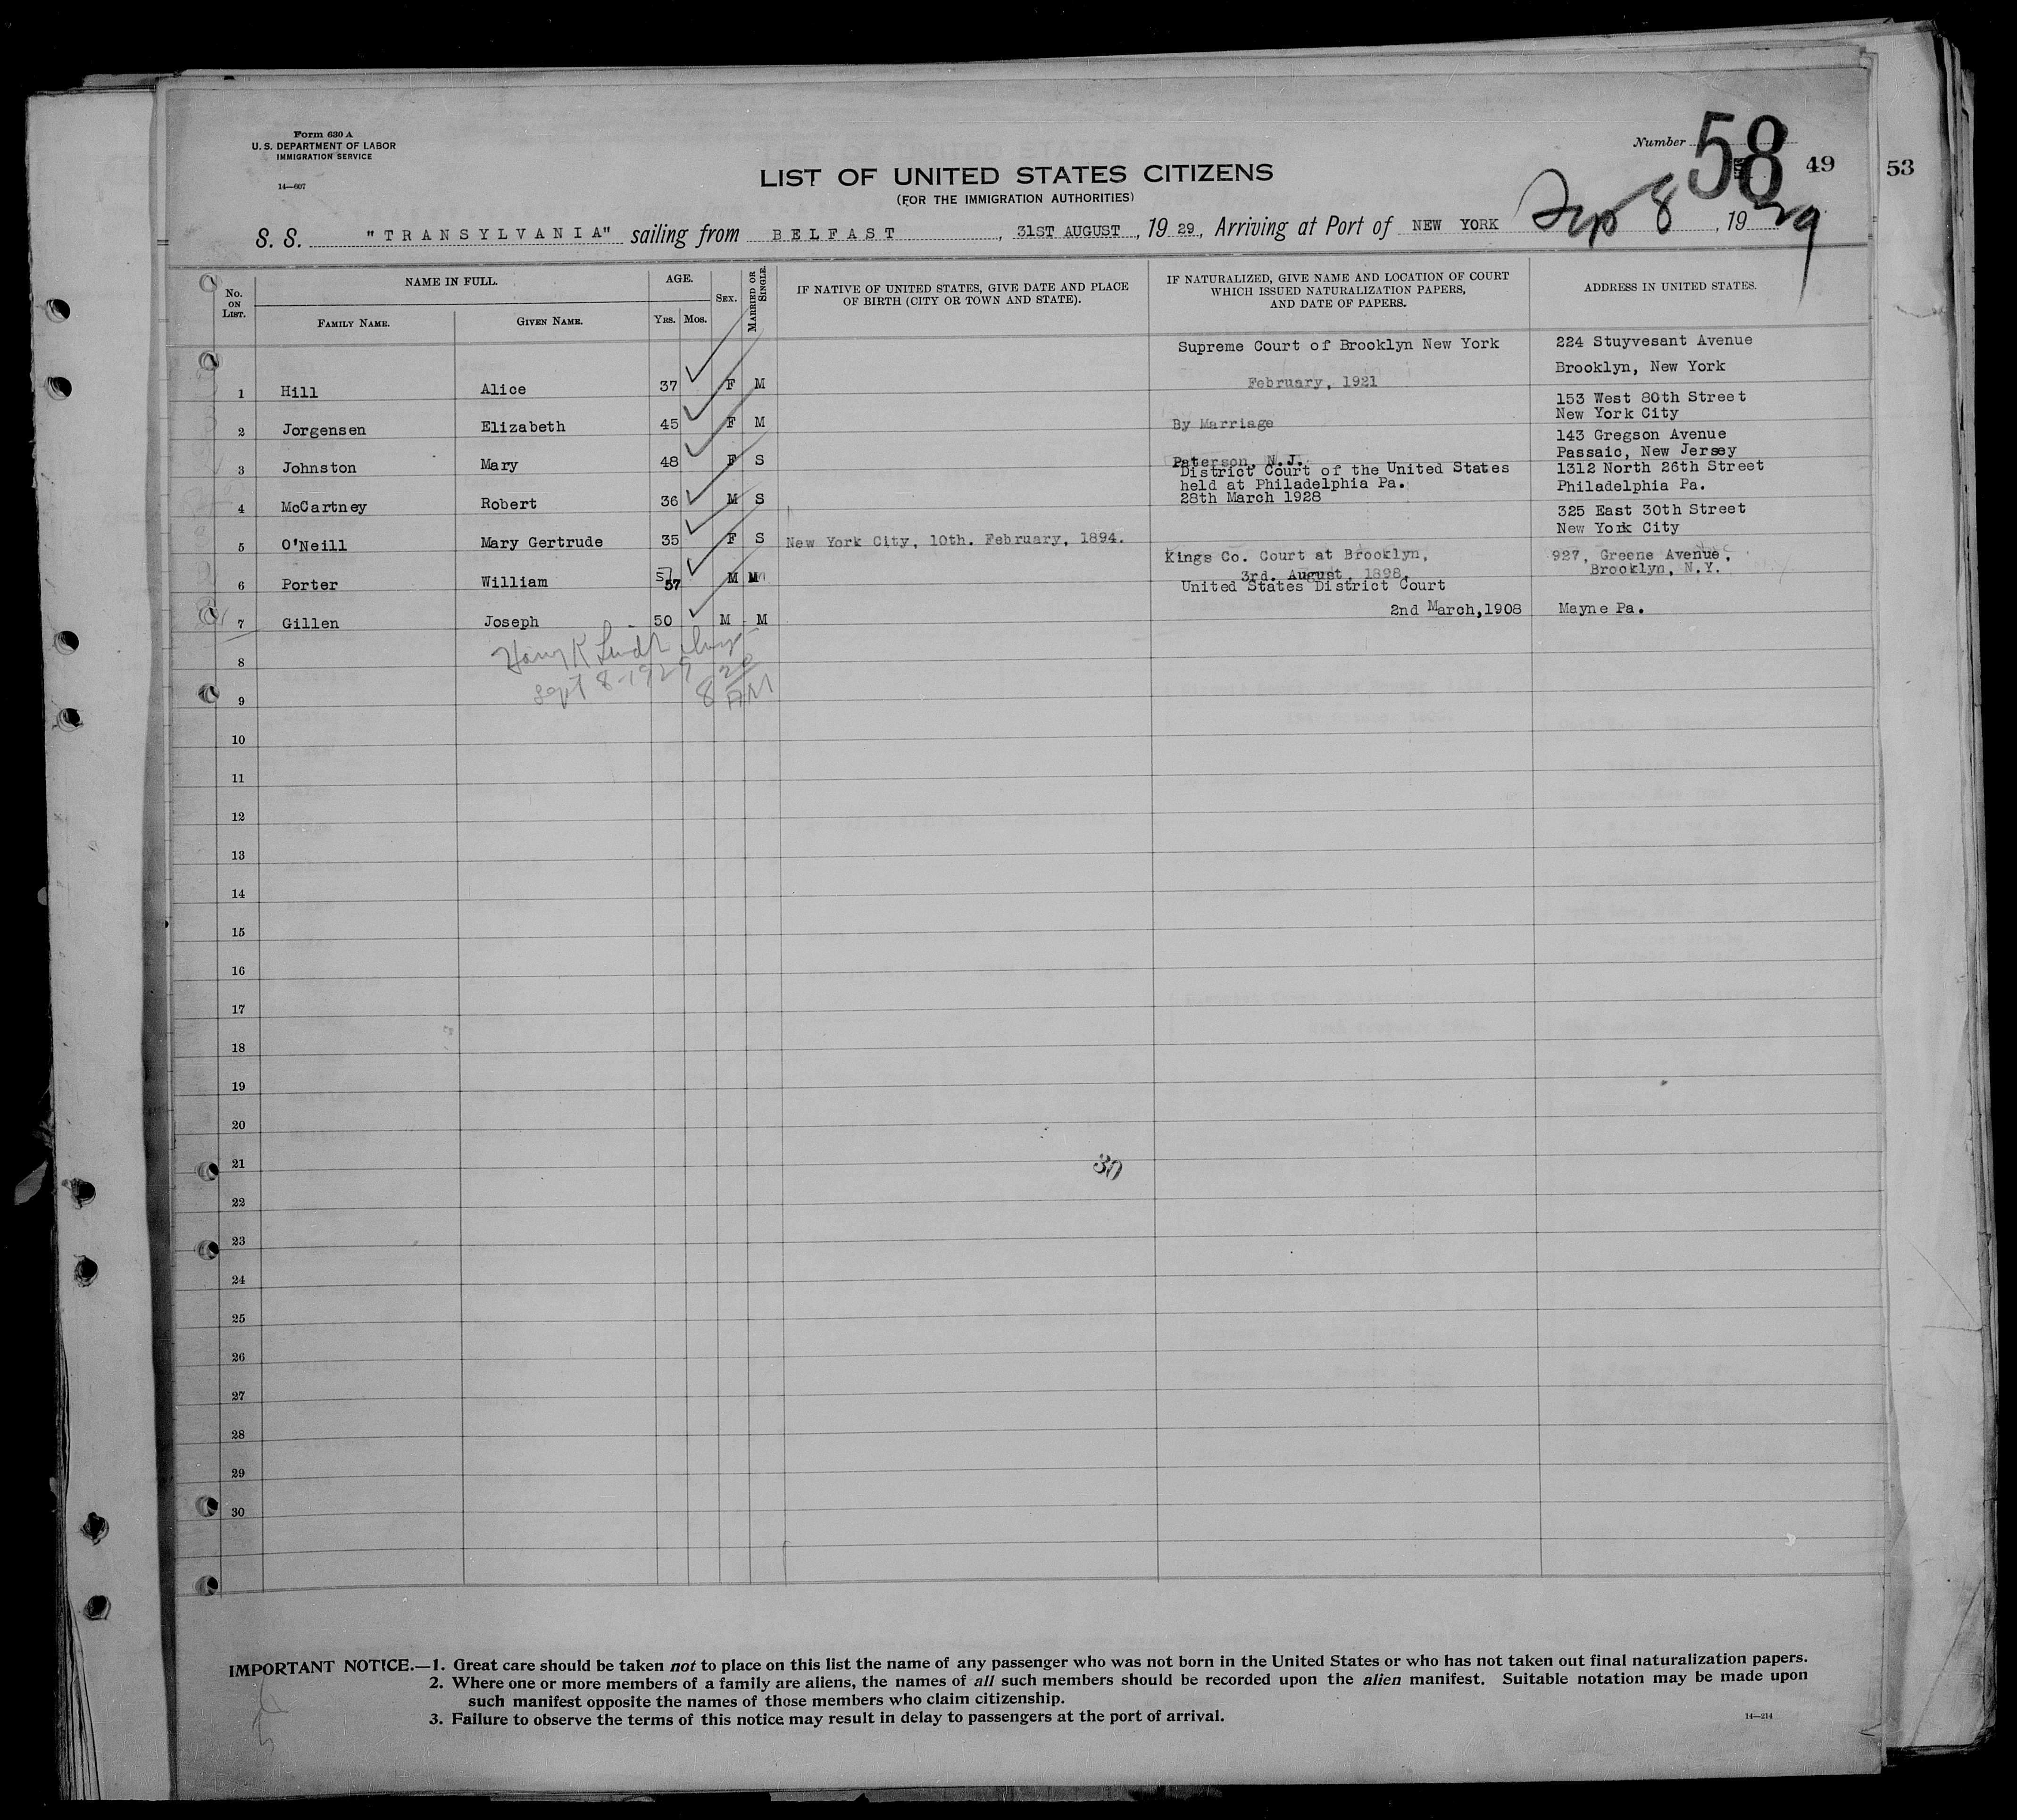 Form 630 A
U. S. DEPARTMENT OF LABOR
IMMIGRATION SERVICE
14—607
Number 58 49 53
LIST OF UNITED STATES CITIZENS
(FOR THE IMMIGRATION AUTHORITIES)
S. S. "TRANSYLVANIA" sailing from BELFAST, 31ST AUGUST, 19 29, Arriving at Port of NEW YORK Sep 8, 19 29
No. ON LIST.
NAME IN FULL.
FAMILY NAME. GIVEN NAME.
AGE.
YRS. MOS.
SEX.
MARRIED OR SINGLE.
IF NATIVE OF UNITED STATES, GIVE DATE AND PLACE
OF BIRTH (CITY OR TOWN AND STATE).
IF NATURALIZED, GIVE NAME AND LOCATION OF COURT
WHICH ISSUED NATURALIZATION PAPERS,
AND DATE OF PAPERS.
ADDRESS IN UNITED STATES.
Supreme Court of Brooklyn New York 224 Stuyvesant Avenue
Brooklyn, New York
1 Hill Alice 37 F M February, 1921
153 West 80th Street
New York City
2 Jorgensen Elizabeth 45 F M By Marriage
143 Gregson Avenue
Passaic, New Jersey
3 Johnston Mary 48 F S Paterson, N.J.
District Court of the United States 1312 North 26th Street
held at Philadelphia Pa. Philadelphia Pa.
4 McCartney Robert 36 M S 28th March 1928
325 East 30th Street
New York City
5 O'Neill Mary Gertrude 35 F S New York City, 10th. February, 1894.
Kings Co. Court at Brooklyn, 927, Greene Avenue,
6 Porter William 57 57 M M 3rd. August, 1898. Brooklyn, N.Y.
United States District Court
7 Gillen Joseph 50 M M 2nd March, 1908 Mayne Pa.
8
Sept 8-1929 8 20 AM
9
10
11
12
13
14
15
16
17
18
19
20
21
30
22
23
24
25
26
27
28
29
30
IMPORTANT NOTICE.—1. Great care should be taken not to place on this list the name of any passenger who was not born in the United States or who has not taken out final naturalization papers.
2. Where one or more members of a family are aliens, the names of all such members should be recorded upon the alien manifest. Suitable notation may be made upon
such manifest opposite the names of those members who claim citizenship.
3. Failure to observe the terms of this notice may result in delay to passengers at the port of arrival.
14—214